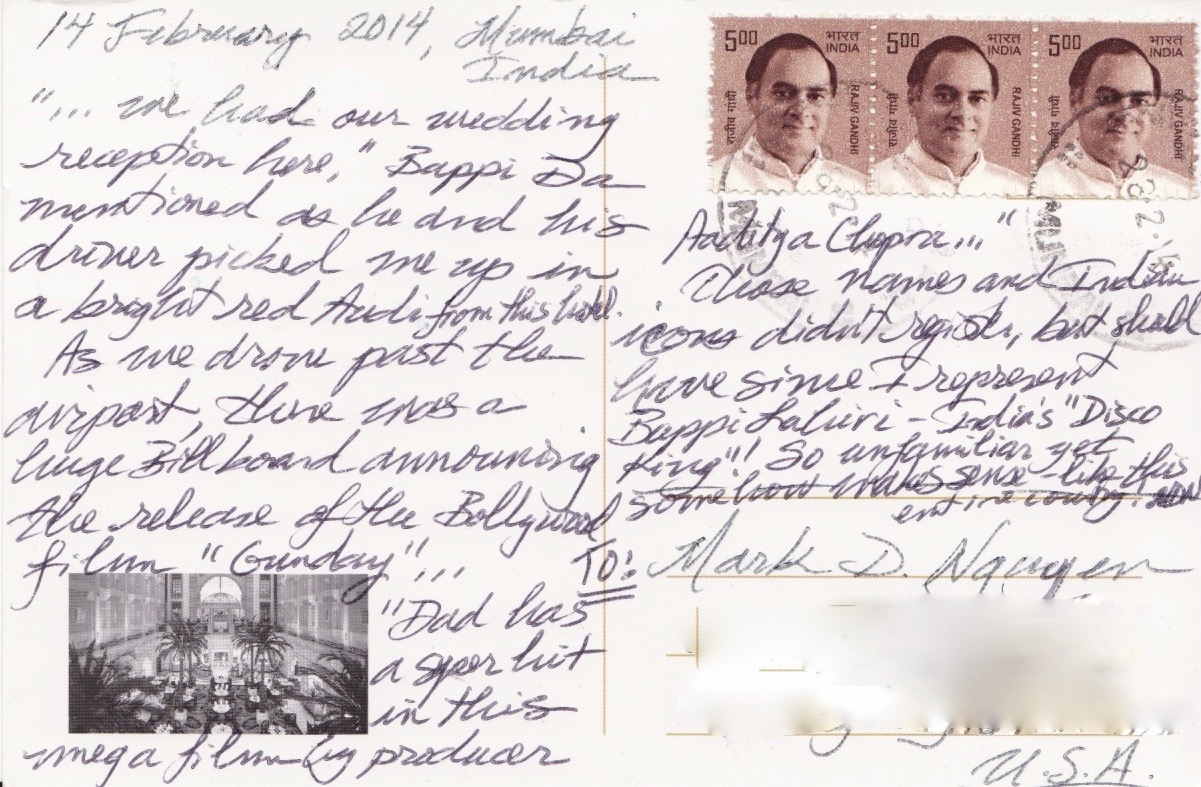 14 February 2014, Mumbai
India
"... we had our wedding
reception here," Bappi Da
mentioned as he and his
driver picked me up in
a bright red Audi from this hotel.
As we drove past the
airport, there was a
huge Billboard announcing
the release of the Bollywood
film "Gunday"...
"Dad has
a super hit
in this
mega film by producer
500 भारत INDIA RAJIV GANDHI राजीव गांधी
500 भारत INDIA RAJIV GANDHI राजीव गांधी
500 भारत INDIA RAJIV GANDHI राजीव गांधी
Aaditya Chopra..."
Those names and Indian
icons didn't register, but should
have since I represent
Bappi Lahiri - India's "Disco
King"! So unfamiliar yet
somehow makes sense - like this
entire country.
TO: Mark D. Nguyen
U.S.A.